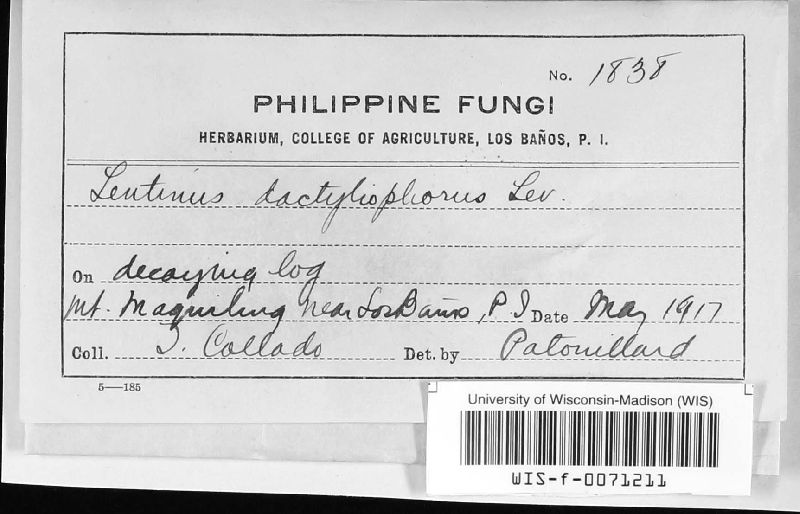 No. 1838
PHILIPPINE FUNGI
HERBARIUM, COLLEGE OF AGRICULTURE, LOS BAÑOS, P. I.
Lentinus dactyliophorus Lev.
On decaying log
Mt. Maquiling near Los Baños, P. I Date May 1917
Coll. T. Collado Det. by Patouillard
5—185
University of Wisconsin-Madison (WIS)
WIS-f-0071211